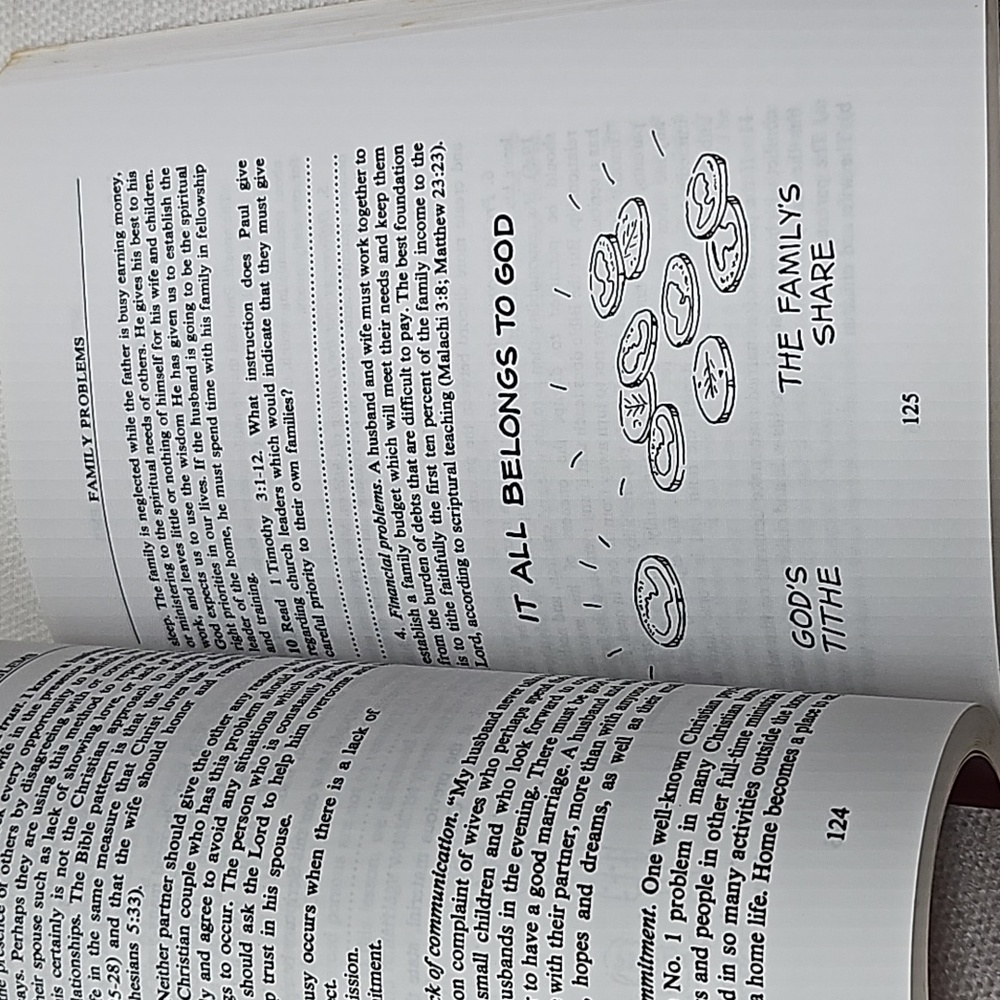 the presence of others by disagreeing with
ways. Perhaps they are using this method
their spouse such as lack of showing love or
is certainly is not the Christian approach to
lationships. The Bible pattern is that the
fe in the same measure that Christ loves the
5-28) and that the wife should honor and
hesians 5:33).
Neither partner should give the other any
Christian couple who has this problem should
y and agree to avoid any situations which
gs to occur. The person who is constantly
should ask the Lord to help him overcome
p trust in his spouse.
usy occurs when there is a lack of
ct.
ission.
itment.
ck of communication. "My husband never
on complaint of wives who perhaps spend
small children and who look forward to
usbands in the evening. There must be
r to have a good marriage. A husband
with their partner, more than with anyone
, hopes and dreams, as well as their
mmitment. One well-known Christian
No. 1 problem in many Christian
s and people in other full-time
d in so many activities outside the
a home life. Home becomes a place
124
FAMILY PROBLEMS
sleep. The family is neglected while the father is busy earning money,
or ministering to the spiritual needs of others. He gives his best to his
work, and leaves little or nothing of himself for his wife and children.
God expects us to use the wisdom He has given us to establish the
right priorities in our lives. If the husband is going to be the spiritual
leader of the home, he must spend time with his family in fellowship
and training.
10 Read 1 Timothy 3:1-12. What instruction does Paul give
regarding church leaders which would indicate that they must give
careful priority to their own families?
4. Financial problems. A husband and wife must work together to
establish a family budget which will meet their needs and keep them
from the burden of debts that are difficult to pay. The best foundation
is to tithe faithfully the first ten percent of the family income to the
Lord, according to scriptural teaching (Malachi 3:8; Matthew 23:23).
IT ALL BELONGS TO GOD
GOD'S
TITHE
THE FAMILY'S
SHARE
125